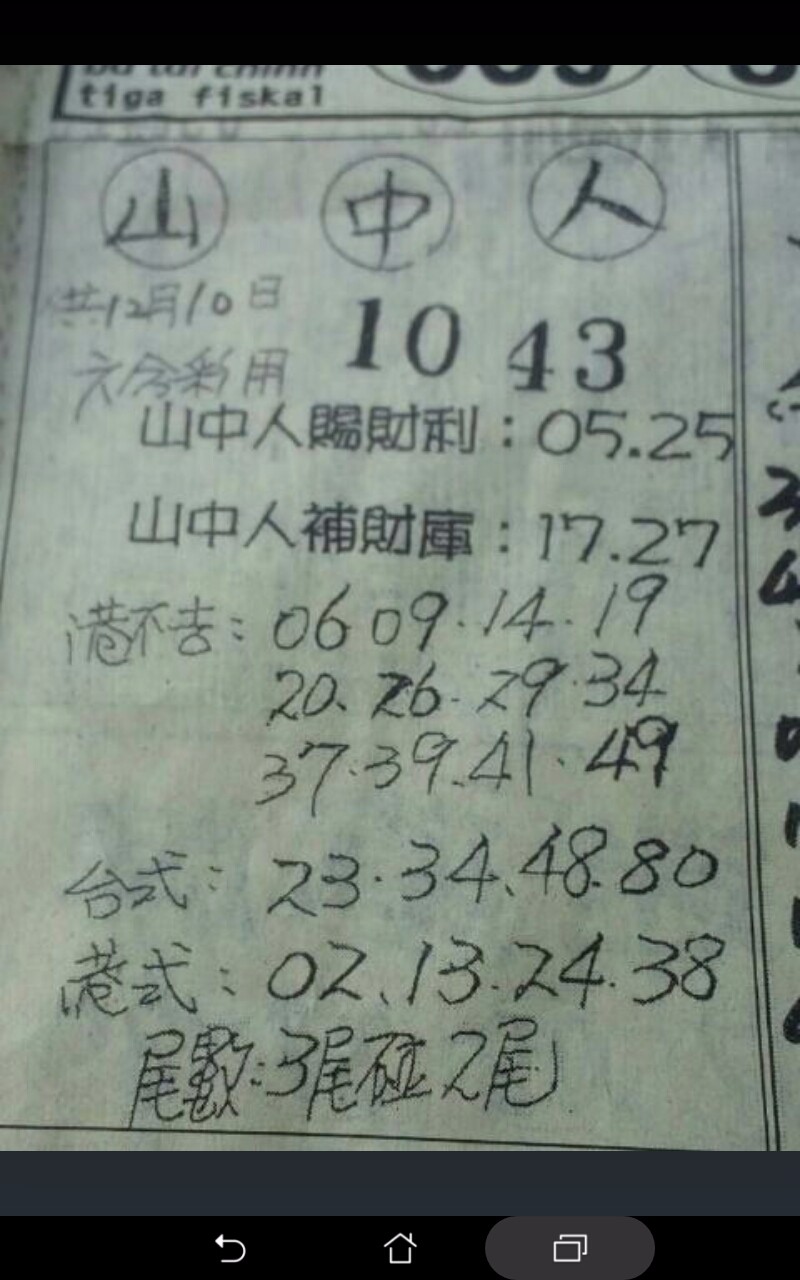 tiga fiskal
山 中 人
供12月10日
10 43
六合彩用
山中人賜財利：05.25
山中人補財庫：17.27
港不去：06 09.14.19
20.26.29.34
37.39.41.49
台式：23.34.48.80
港式：02.13.24.38
尾數：3尾碰2尾